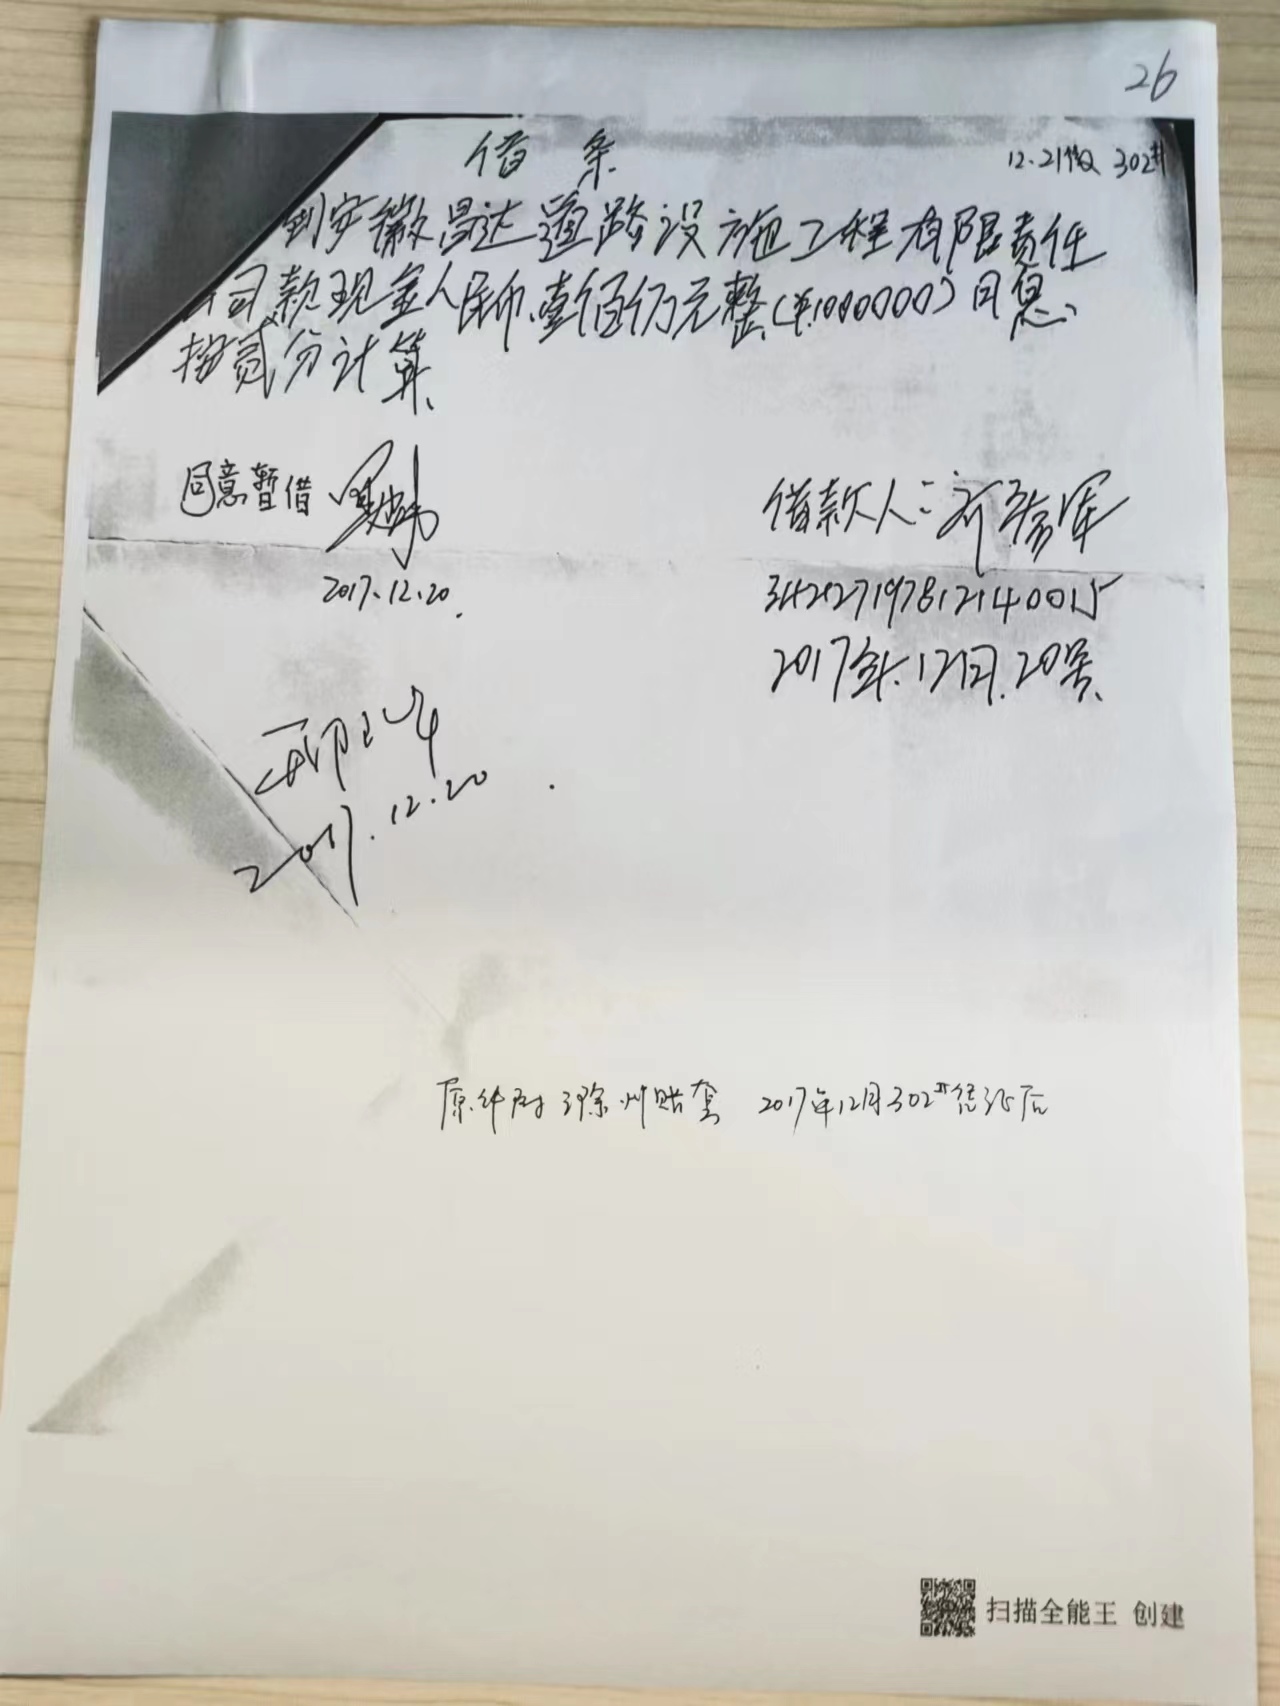 26
借条
12.21 302#
到安徽昌达道路设施工程有限责任
司款现金人民币壹佰万元整(¥:1000000)月息
按贰分计算
同意暂借
2017.12.20
借款人:
2017年12月20号
2017.12.20
原件附滁州账套 2017年12月302#凭证后
扫描全能王 创建